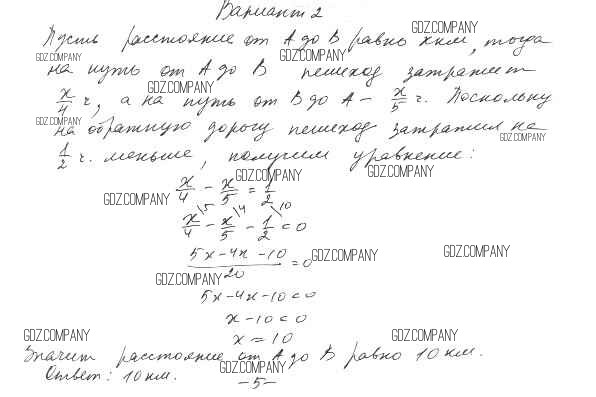 Вариант 2
GDZ.COMPANY
Пусть расстояние от А до В равно x км, тогда
GDZ.COMPANY GDZ.COMPANY
на путь от А до В пешеход затратит
GDZ.COMPANY
x/4 ч, а на путь от В до А – x/5 ч. Поскольку
GDZ.COMPANY
на обратную дорогу пешеход затратил на
GDZ.COMPANY
1/2 ч. меньше, получим уравнение:
GDZ.COMPANY GDZ.COMPANY
x/4 - x/5 = 1/2
GDZ.COMPANY
x/4 \5 - x/5 \4 - 1/2 \10 = 0
(5x - 4x - 10)/20 = 0
GDZ.COMPANY GDZ.COMPANY
GDZ.COMPANY
5x - 4x - 10 = 0
x - 10 = 0
GDZ.COMPANY GDZ.COMPANY
x = 10
Значит расстояние от А до В равно 10 км.
GDZ.COMPANY
Ответ: 10 км.
-5-